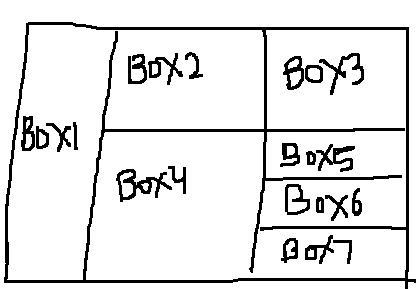 BOX1
BOX2
BOX3
BOX4
BOX5
BOX6
BOX7